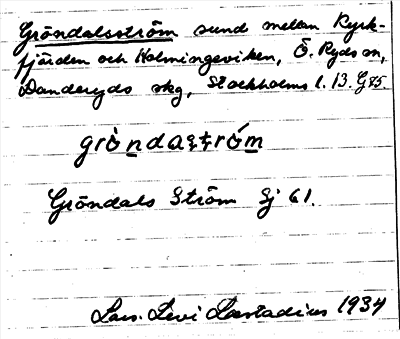 Gröndalsström sund mellan Kyrk-
fjärden och Holmingeviken, Ö. Ryds sn,
Danderyds skg, Stockholms l. 13. G 85.
gròndaströ́m
Gröndals Ström Sj 61.
Lars. Levi Læstadius 1934